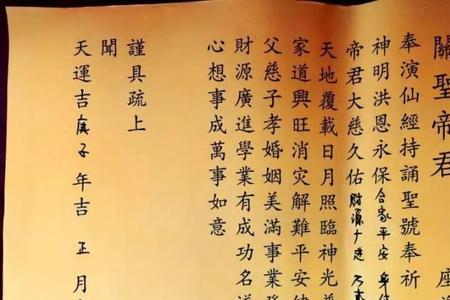 關聖帝君 座
奉演仙經持誦聖號奉祈
神明洪恩永保合家平安
帝君大慈久佑財源广进
天地覆載日月照臨神光
家道興旺消灾解難平安
父慈子孝婚姻美滿事業
財源廣進學業有成功名
心想事成萬事如意
謹具疏上
聞
天運吉庚子年吉正月